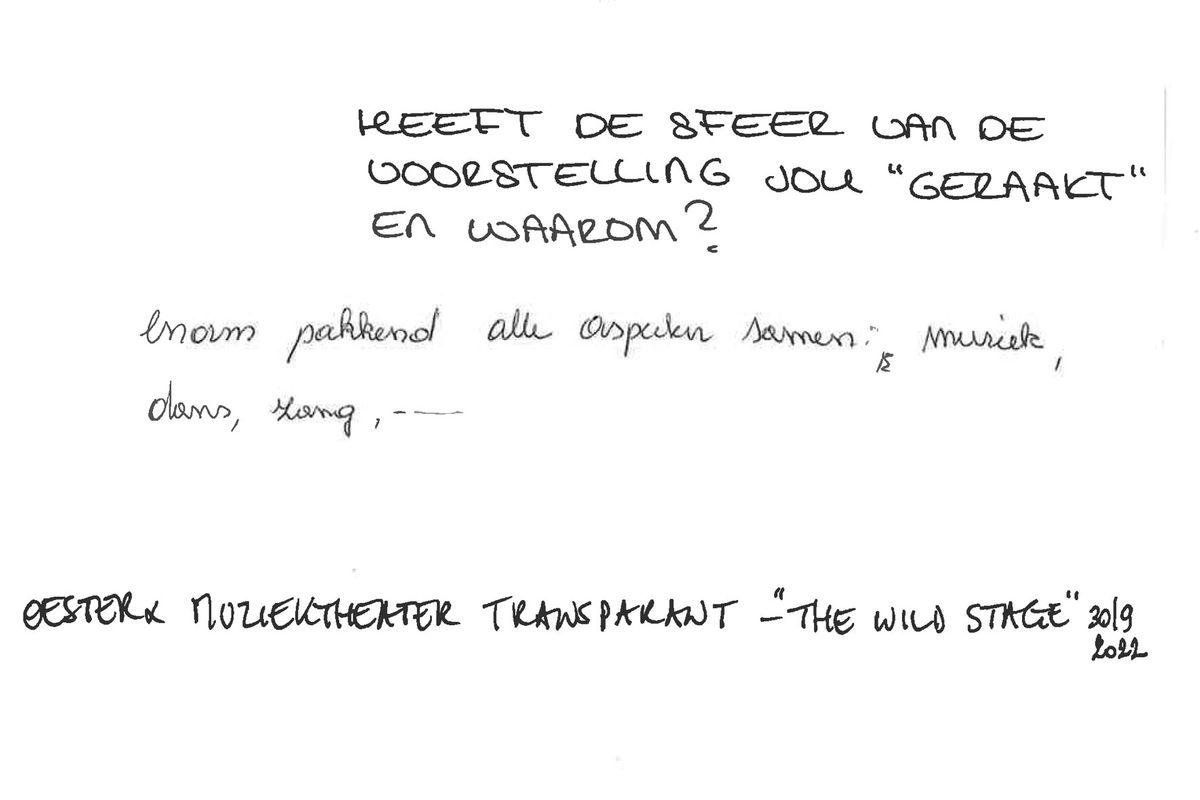 HEEFT DE SFEER VAN DE
VOORSTELLING JOU "GERAAKT"
EN WAAROM?
enorm pakkend alle aspecten samen: muziek,
dans, zang, ---
OESTER& MUZIEKTHEATER TRANSPARANT - "THE WILD STAGE" 30/9
2022